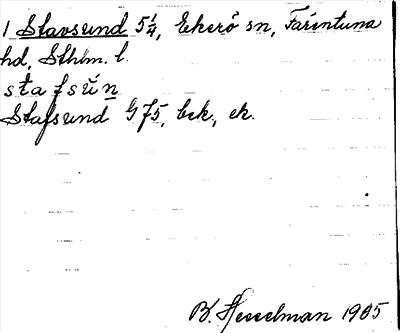 1 Stavsund 5 1/4, Ekerö sn, Färentuna
hd, Sthlm. l.
stafsun
Stafsund G75, bek., ek.
B. Hesselman 1905